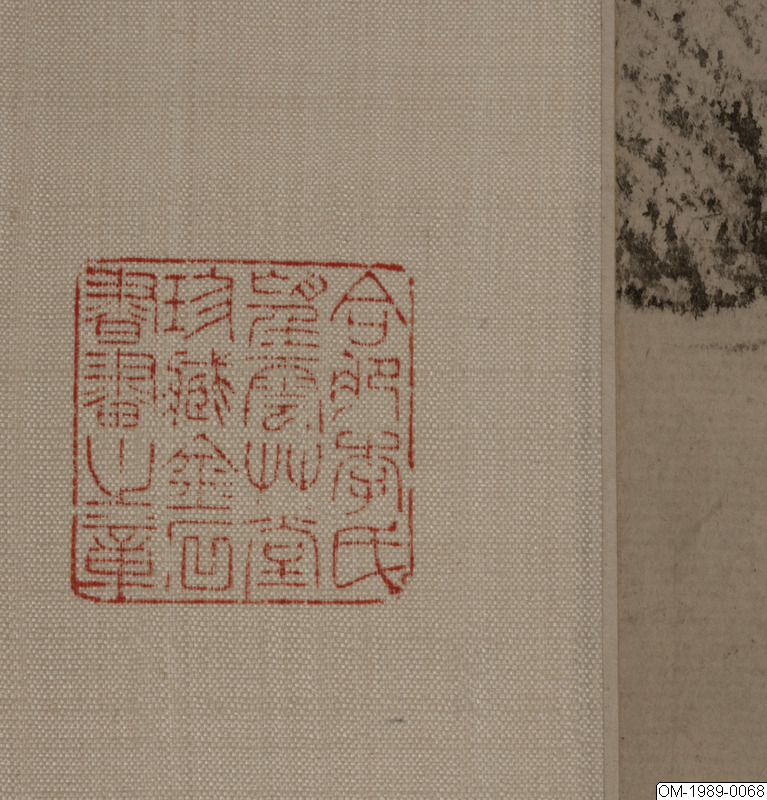 合肥李氏
望雲艸堂
珍藏金石
書畫之章
OM-1989-0068